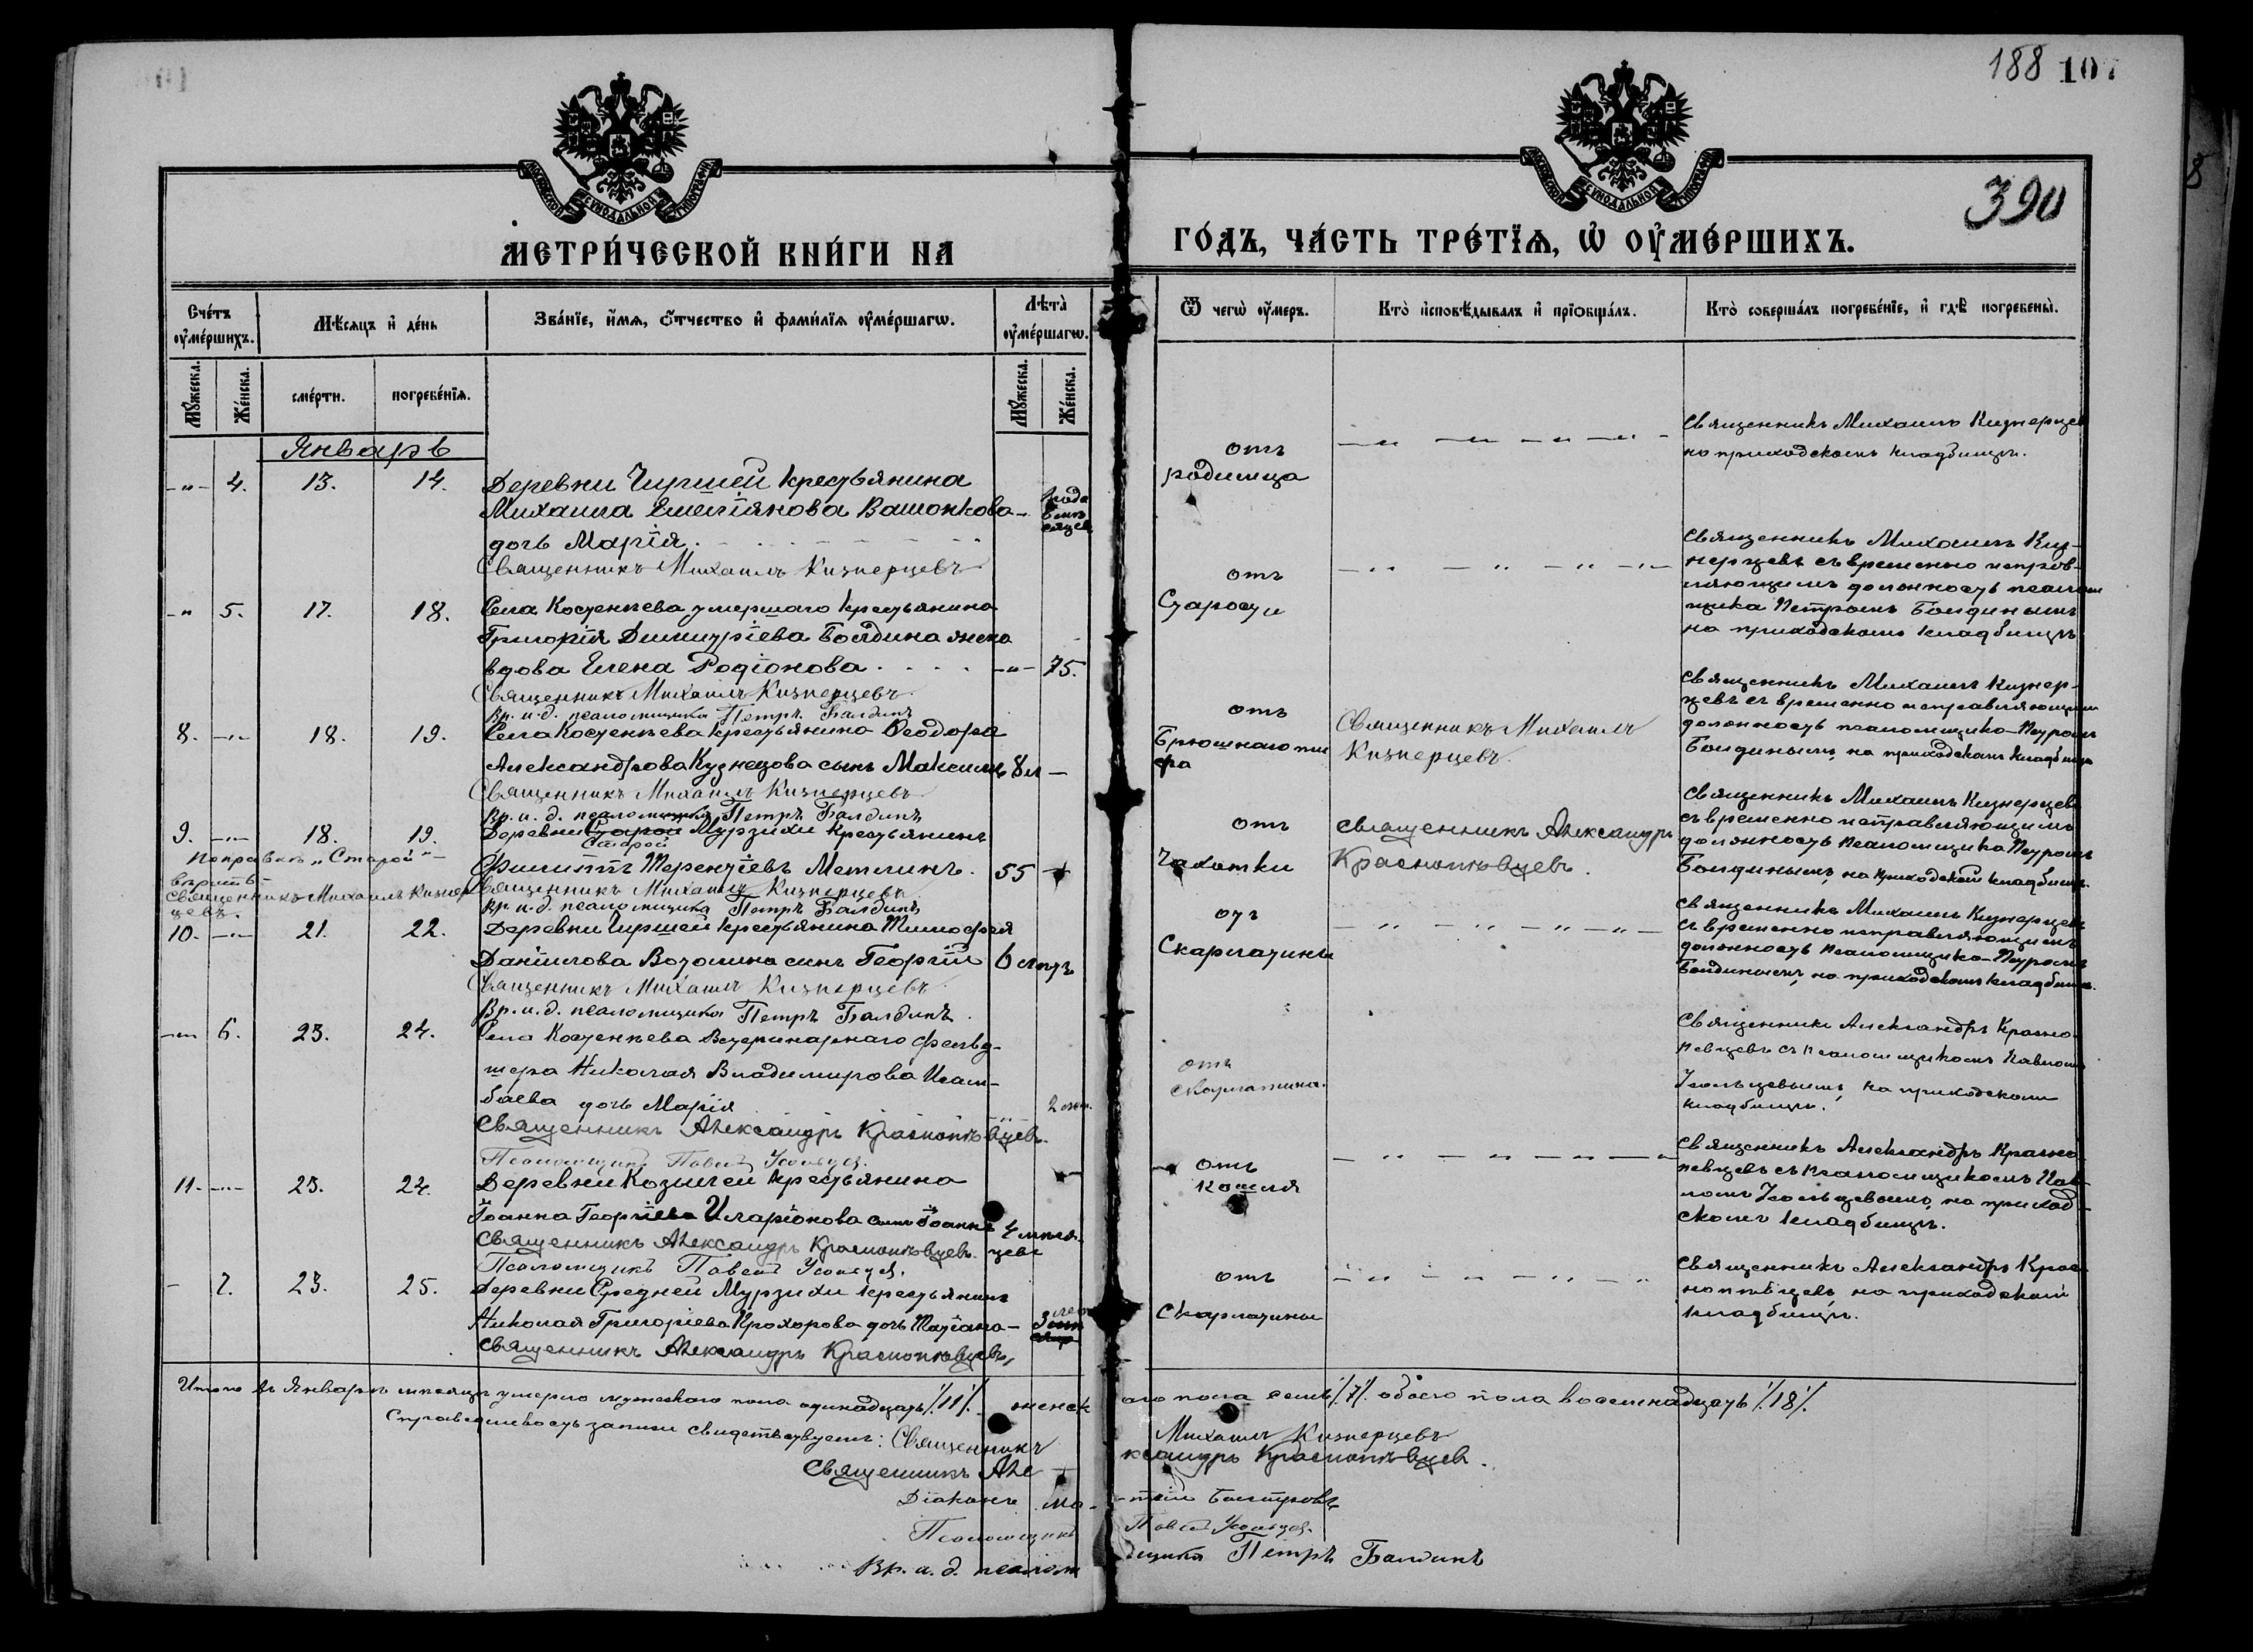 188 107
390
МЕТРИ́ЧЕСКОЙ КНИ́ГИ НА
ГО́ДЪ, ЧА́СТЬ ТРЕ́ТЇѦ, Ѽ ОУ҆МЕ́РШИХЪ.
Сче́тъ оу҆ме́ршихъ.
Мѣ́сяцъ и҆ де́нь
Зва́нїе, и҆́мѧ, о҆́тчество и҆ фами́лїѧ оу҆ме́ршагѡ.
Лѣта̀ оу҆ме́ршагѡ.
Ѿ чегѡ̀ оу҆́меръ.
Кто̀ и҆сповѣ́дывалъ и҆ прїѡбща́лъ.
Кто̀ соверша́лъ погребе́нїе, и҆ гдѣ̀ погребены̀.
Мꙋ́жеска.
Же́нска.
сме́рти.
погребе́нїѧ.
Мꙋ́жеска.
Же́нска.
Январь
-"- 4. 13. 14. Деревни Чиршей крестьянина
Михаила Емелiянова Вашонкова-
дочь Марiя.
Священникъ Михаилъ Кизнерцевъ
отъ
родимца
Священникъ Михаилъ Кизнерцевъ
на приходскомъ кладбищѣ.
-" 5. 17. 18. Села Костенѣева умершаго крестьянина
Григорiя Димитрiева Болдина жена
вдова Елена Родiонова -"- 75.
Священникъ Михаилъ Кизнерцевъ.
Вр. и. д. псаломщика Петръ Балдинъ
отъ
Старости
Священникъ Михаилъ Киз-
нерцевъ съ временно исправ-
ляющимъ должность псалом
щика Петромъ Болдинымъ
на приходскомъ кладбищѣ
8. -"- 18. 19. Села Костенѣева крестьянина Ѳеодора
Александрова Кузнецова сынъ Максимъ 8 л -
Священникъ Михаилъ Кизнерцевъ.
Вр. и. д. псаломщика Петръ Балдинъ
отъ
Брюшнаго ти
фа
Священникъ Михаилъ
Кизнерцевъ.
Священникъ Михаилъ Кизнер-
цевъ съ временно исправляющимъ
должность псаломщика-Петромъ
Болдинымъ, на приходскомъ кладбищѣ
9. -"- 18. 19. Деревни Старой Мурзихи крестьянинъ
Старой
Поправкѣ "Старой"-
вѣрить
Священникъ Михаилъ Кизнер
цевъ.
Филиппъ Терентiевъ Метлинъ. 55
Священникъ Михаилъ Кизнерцевъ.
Вр. и. д. псаломщика Петръ Балдинъ
отъ
Чахотки
Священникъ Александръ
Краснопѣвцевъ.
Священникъ Михаилъ Кизнерцевъ
съ временно исправляющимъ
должность псаломщика Петромъ
Болдинымъ, на приходскомъ кладбищѣ.
10. -"- 21. 22. Деревни Чиршей крестьянина Тимофея
Данiилова Вотолина сынъ Георгiй 6 лѣтъ
Священникъ Михаилъ Кизнерцевъ.
Вр. и. д. псаломщика Петръ Балдинъ.
отъ
Скарлатины
Священникъ Михаилъ Кизнерцевъ
съ временно исправляющимъ
должность псаломщика-Петромъ
Болдинымъ, на приходскомъ кладбищѣ.
-"- 6. 23. 24. Села Костенѣева Ветеринарнаго фельд-
шера Николая Владимирова Исам-
баева дочь Марiя
Священникъ Александръ Краснопѣвцевъ.
Псаломщикъ Павелъ Усольцев.
отъ
скарлатина.
Священникъ Александръ Красно-
пѣвцевъ съ псаломщикомъ Павломъ
Усольцевымъ, на приходскомъ
кладбищѣ.
11. -"- 23. 24. Деревни Козылей крестьянина
Iоанна Георгiева Иларiонова сынъ Iоаннъ 4 мѣся-
цевъ
Священникъ Александръ Краснопѣвцевъ.
Псаломщикъ Павелъ Усольцев.
отъ
кашля
Священникъ Александръ Красно-
пѣвцевъ съ псаломщикомъ Пав-
ломъ Усольцевымъ, на приход-
скомъ кладбищѣ.
- 7. 23. 25. Деревни Средней Мурзихи крестьянина
Николая Григорiева Прохорова дочь Татiана-
Священникъ Александръ Краснопѣвцевъ,
отъ
Скарлатины
Священникъ Александръ Крас-
нопѣвцевъ на приходскомъ
кладбищѣ.
Итого въ Январѣ мѣсяцѣ умерло мужескаго пола одинадцать /11/. женск ого пола семь /7/. обоего пола восемнадцать /18/.
Справедливость записи свидѣтельствуемъ: Священникъ Михаилъ Кизнерцевъ
Священникъ Александръ Краснопѣвцев.
Дiаконъ
Псаломщикъ Павелъ Усольцев.
Вр. и. д. псаломщика Петръ Балдинъ